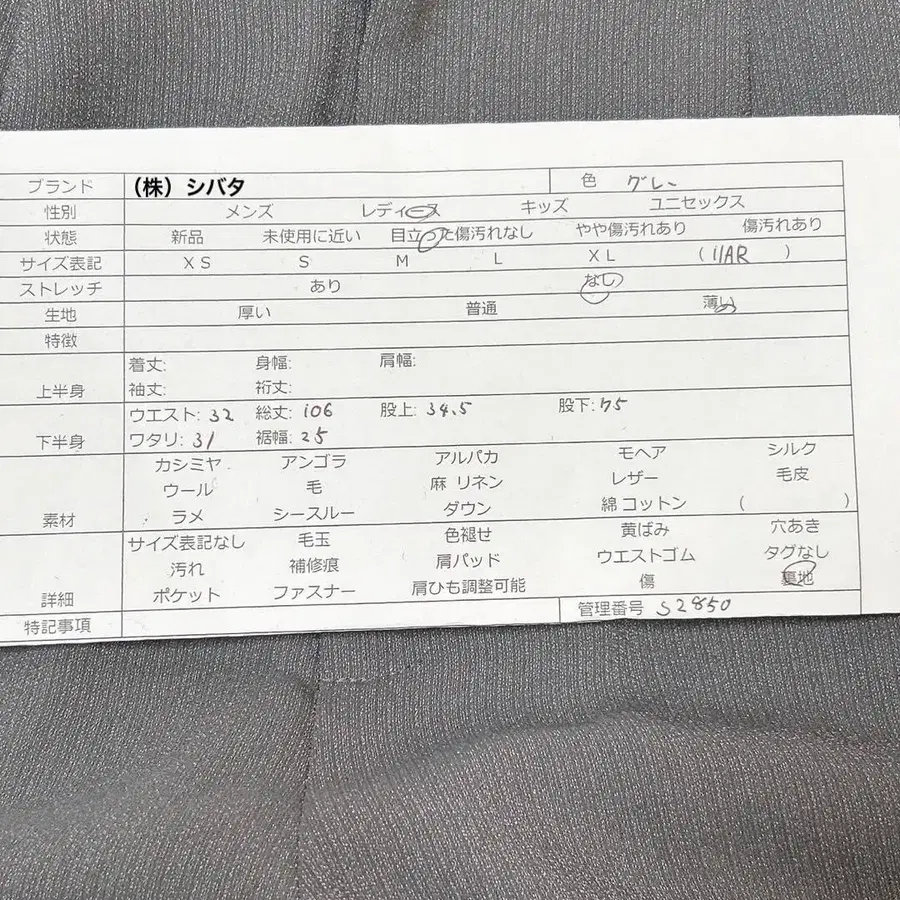 ブランド （株）シバタ 色 グレー
性別 メンズ レディース キッズ ユニセックス
状態 新品 未使用に近い 目立った傷汚れなし やや傷汚れあり 傷汚れあり
サイズ表記 XS S M L XL ( 11AR )
ストレッチ あり なし
生地 厚い 普通 薄い
特徴
着丈: 身幅: 肩幅:
上半身 袖丈: 裄丈:
ウエスト: 32 総丈: 106 股上: 34.5 股下: 75
下半身 ワタリ: 31 裾幅: 25
カシミヤ アンゴラ アルパカ モヘア シルク
ウール 毛 麻 リネン レザー 毛皮
素材 ラメ シースルー ダウン 綿 コットン ( )
サイズ表記なし 毛玉 色褪せ 黄ばみ 穴あき
汚れ 補修痕 肩パッド ウエストゴム タグなし
詳細 ポケット ファスナー 肩ひも調整可能 傷 裏地
特記事項 管理番号 S2850